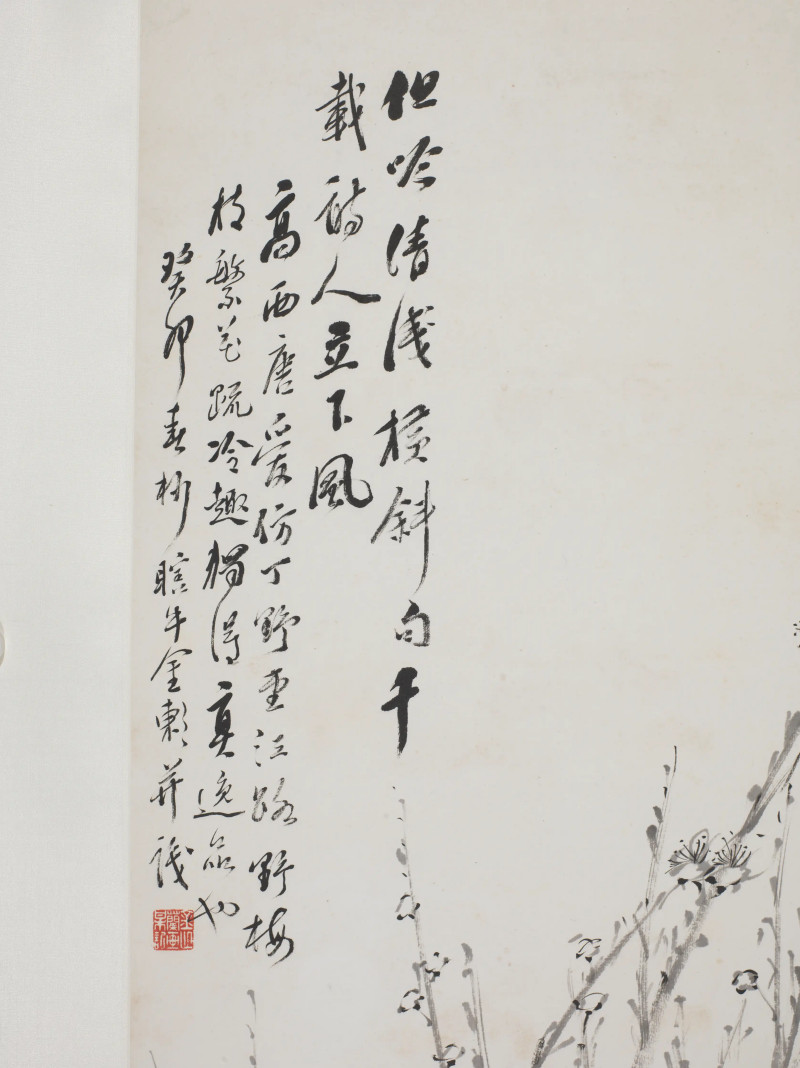 但吟清淺橫斜句千
載詩人立下風
高西唐愛仿丁野堂江路野梅
枝繁花疏冷趣獨得真逸品也
癸卯春杪瞎牛金𣂏并識